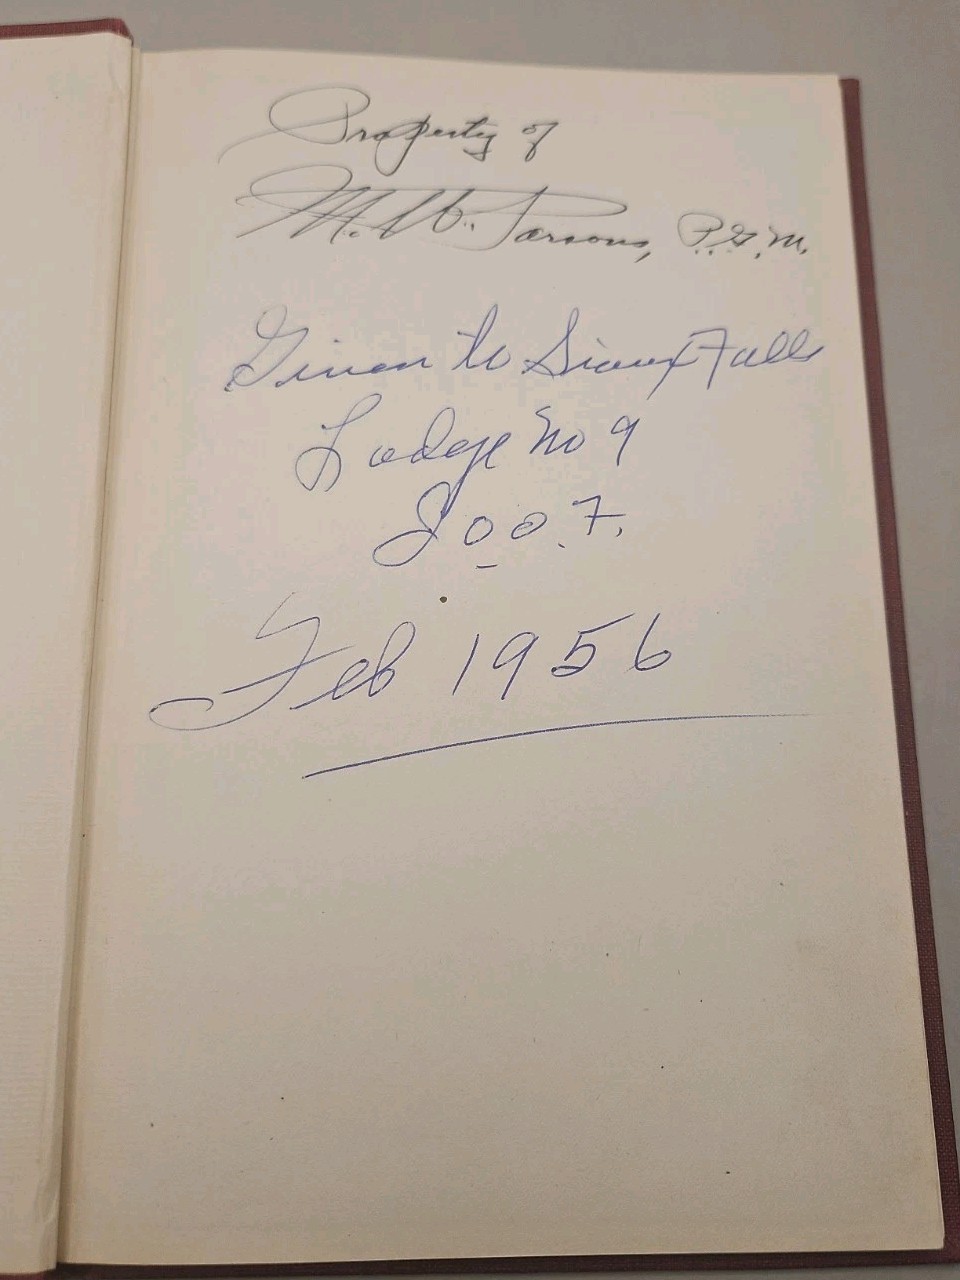 Property of
M. W. Parsons, P.G.M.
Given to Sioux Falls
Lodge No 9
I.O.O.F.
Feb 1956